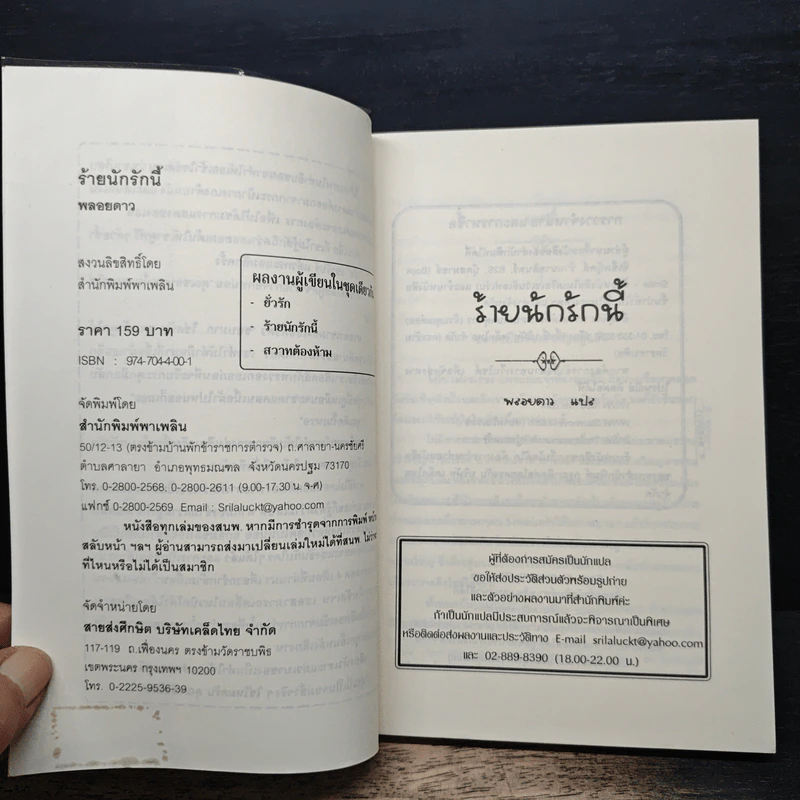 ร้ายนักรักนี้
พลอยดาว
สงวนลิขสิทธิ์โดย
สำนักพิมพ์พาเพลิน
ราคา 159 บาท
ISBN : 974-704-4-00-1
ผลงานผู้เขียนในชุดเดียวกัน
- ยั่วรัก
- ร้ายนักรักนี้
- สวาทต้องห้าม
จัดพิมพ์โดย
สำนักพิมพ์พาเพลิน
50/12-13 (ตรงข้ามบ้านพักข้าราชการตำรวจ) ถ.ศาลายา-นครชัยศรี
ตำบลศาลายา อำเภอพุทธมณฑล จังหวัดนครปฐม 73170
โทร. 0-2800-2568, 0-2800-2611 (9.00-17.30 น. จ-ศ)
แฟกซ์ 0-2800-2569 Email : Srilaluckt@yahoo.com
หนังสือทุกเล่มของสนพ. หากมีการชำรุดจากการพิมพ์
สลับหน้า ฯลฯ ผู้อ่านสามารถส่งมาเปลี่ยนเล่มใหม่ได้ที่สนพ.
ที่ไหนหรือไม่ได้เป็นสมาชิก
จัดจำหน่ายโดย
สายส่งศึกษิต บริษัทเคล็ดไทย จำกัด
117-119 ถ.เฟื่องนคร ตรงข้ามวัดราชบพิธ
เขตพระนคร กรุงเทพฯ 10200
โทร. 0-2225-9536-39
ร้ายนักรักนี้
พลอยดาว แปล
ผู้ที่ต้องการสมัครเป็นนักแปล
ขอให้ส่งประวัติส่วนตัวพร้อมรูปถ่าย
และตัวอย่างผลงานมาที่สำนักพิมพ์ค่ะ
ถ้าเป็นนักแปลมีประสบการณ์แล้วจะพิจารณาเป็นพิเศษ
หรือติดต่อส่งผลงานและประวัติทาง E-mail srilaluckt@yahoo.com
และ 02-889-8390 (18.00-22.00 น.)